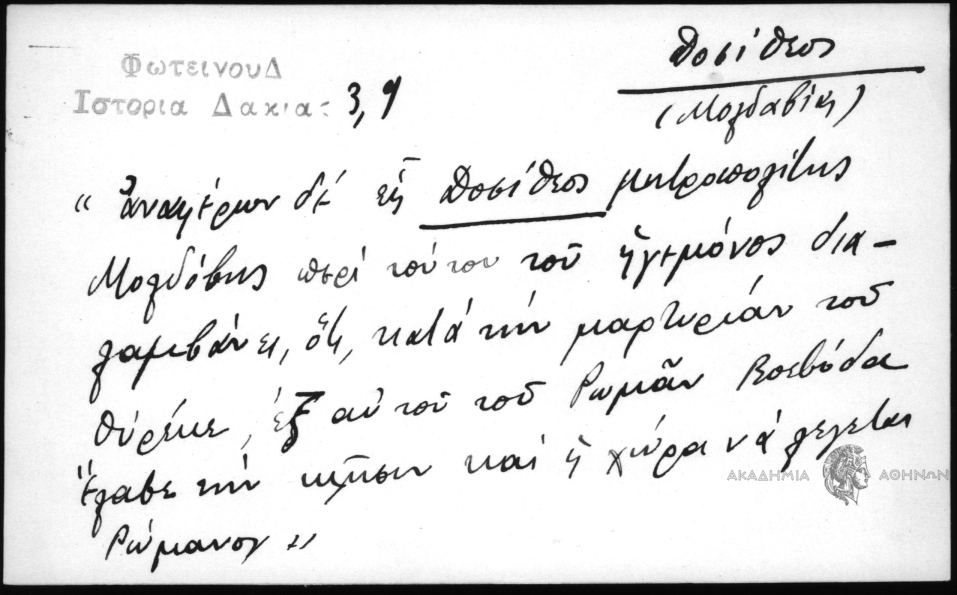 Δοσίθεος
Φωτεινου Δ
Ιστορια Δακιας 3, 9
(Μολδαβίης)
"ἀναφέρων δὲ εἷς Δοσίθεος μητροπολίτης
Μολδόβης περί τούτου τοῦ ἡγεμόνος δια-
λαμβάνει, ὅτι, κατά τήν μαρτυρίαν τοῦ
Θύρέκε, ἐξ αὐτοῦ τοῦ Ρωμᾶν Βοεβόδα
ἔλαβε τήν κλῆσιν καί ἡ χώρα νά λέγεται
Ρώμανον"
ΑΚΑΔΗΜΙΑ ΑΘΗΝΩΝ